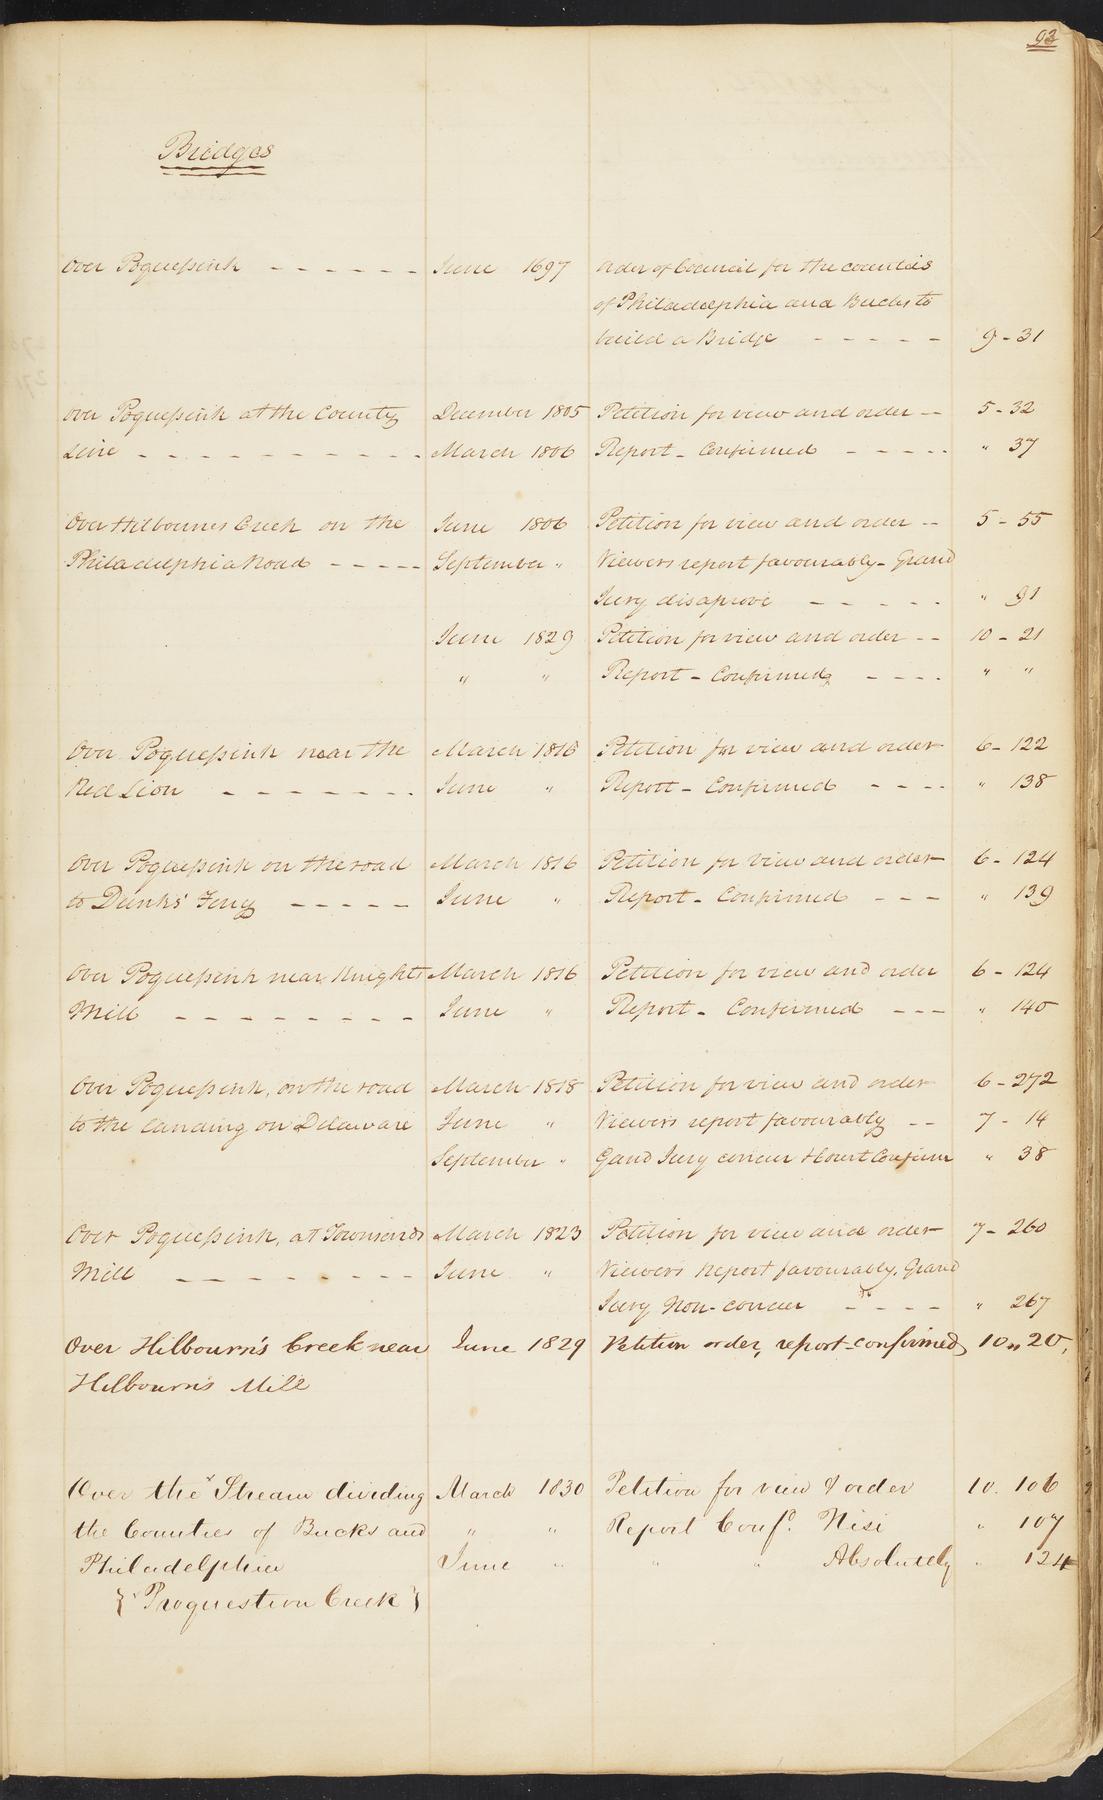 93
Bridges
Over Poquessink - - - - - - June 1697 Order of Council for the counties
of Philadelphia and Bucks to
build a Bridge - - - - - 9 - 31
over Poquessink at the County December 1805 Petition for view and order -- 5 - 32
Line - - - - - - - - - - - March 1806 Report - Confirmed - - - - - " 37
Over Hilbournes Creek on the June 1806 Petition for view and order -- 5 - 55
Philadelphia Road - - - - - September " Viewers report favourably - Grand
Jury disaprove - - - - - " 91
June 1829 Petition for view and order -- 10 - 21
" " Report - Confirmed - - - - " "
Over Poquessink near the March 1816 Petition for view and order 6 - 122
Red Lion - - - - - - - June " Report - Confirmed - - - - " 138
Over Poquessink on the road March 1816 Petition for view and order 6 - 124
to Dunks' Ferry - - - - - June " Report - Confirmed - - - " 139
Over Poquessink near Knights March 1816 Petition for view and order 6 - 124
Mill - - - - - - - - June " Report - Confirmed - - - " 140
Over Poquessink, on the road March 1818 Petition for view and order 6 - 272
to the landing on Delaware June " Viewers report favourably -- 7 - 14
September " Gand Jury concur & Court Confirm " 38
Over Poquessink, at Townsends March 1823 Petition for view and order 7 - 260
Mill - - - - - - - - June " Viewers Report favourably. Grand
Jury Non-concur - - - - " 267
Over Hilbourn's Creek near June 1829 Petition order, report - confirmed 10 " 20,
Hilbourn's Mill
Over the Stream dividing March 1830 Petition for view & order 10. 106
the Counties of Bucks and " " Report Conf.d Nisi " 107
Philadelphia June " " " Absolutely " 124
{ Proquestion Creek }